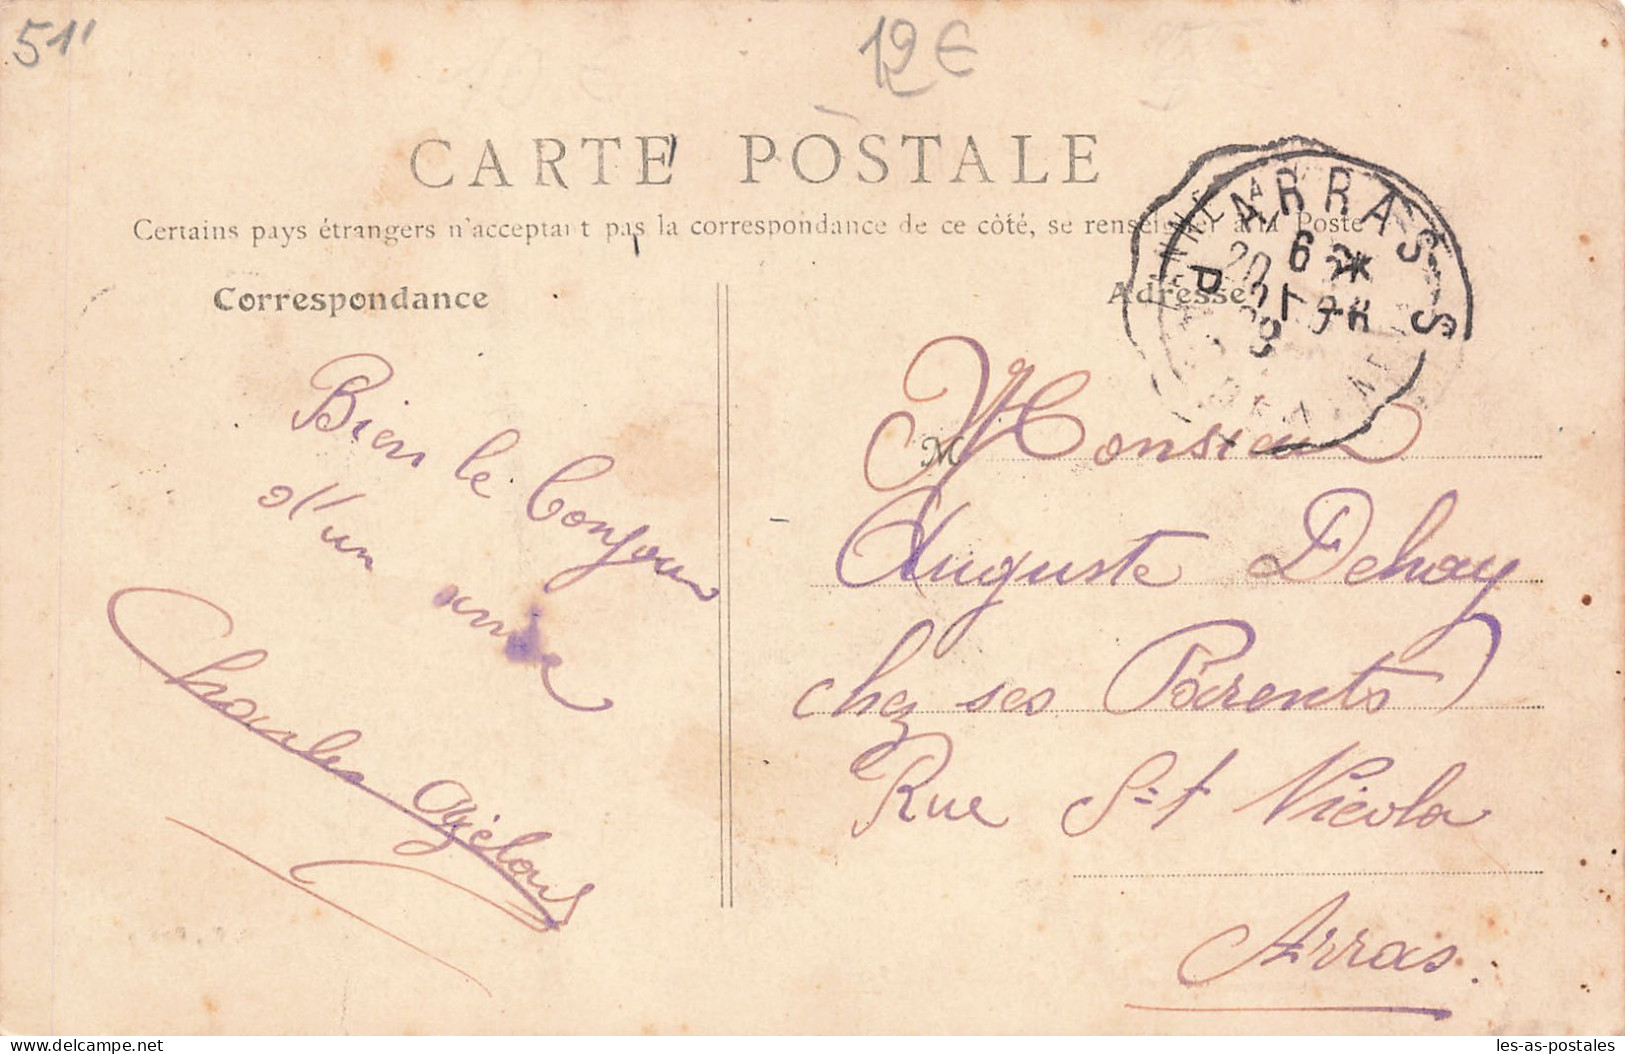 51
12 €
CARTE POSTALE
Certains pays étrangers n'acceptant pas la correspondance de ce côté, se renseigner à la Poste
Correspondance
Adresse
ARRAS
Bien le bonjour
d'un amie
Charles
M Monsieur
Auguste Dehay
chez ses Parents
Rue St Nicola
Arras.
delcampe.net
les-as-postales